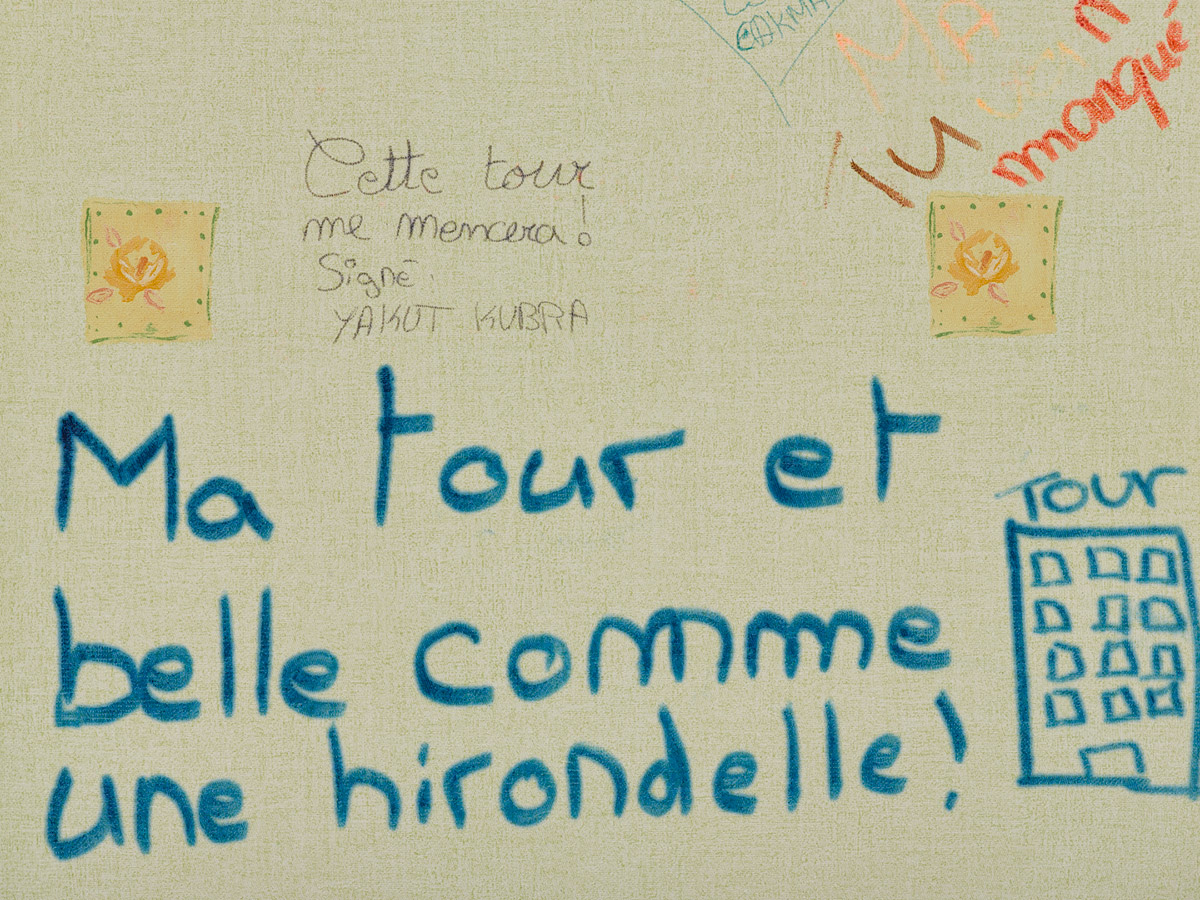 CAKMA
MA
Tu vas m
manqué
Cette tour
me mencera!
Signé
YAKUT KUBRA
Ma tour et
belle comme
une hirondelle!
Tour